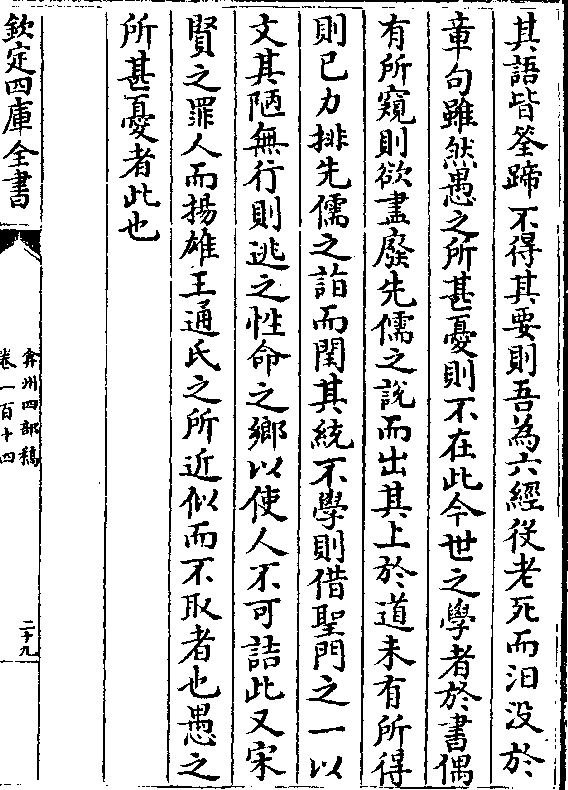 其語皆筌蹄不得其要則吾為六經役老死而汩没於
章句雖然愚之所甚憂則不在此今世之學者於書偶
有所窺則欲盡廢先儒之說而出其上於道未有所得
則已力排先儒之詣而閏其統不學則借聖門之一以
文其陋無行則逃之性命之鄉以使人不可詰此又宋
賢之罪人而揚雄王通氏之所近似而不取者也愚之
所甚憂者此也
欽定四庫全書
弇州四部稿
卷一百十四
二十九